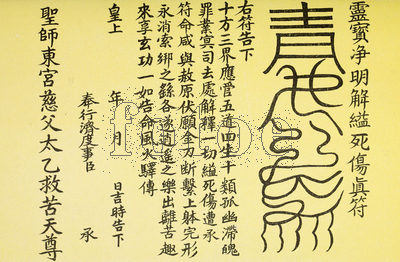 靈寶净明解縊死傷眞符
右符告下
十方三界應管五道四生十類孤幽滯魄
罪業冥司去處解釋一切縊死傷遭承
符命咸與赦原伏願金刀斷繫上躰完形
永消索綁之餘各遂逍遙之樂出離苦趣
來享玄功一如告命風火驛傳
皇上 年 月 日吉時告下
奉行濟度事臣 承
聖師東宮慈父太乙救苦天尊
fotoe